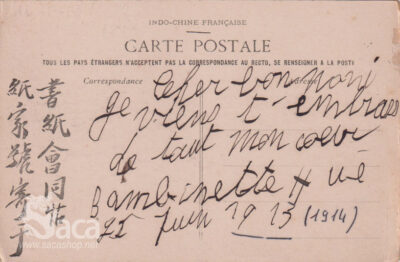 INDO-CHINE FRANÇAISE
CARTE POSTALE
TOUS LES PAYS ÉTRANGERS N'ACCEPTENT PAS LA CORRESPONDANCE AU RECTO, SE RENSEIGNER A LA POSTE
Correspondance
Adresse
Cher bon
Je viens t'embrass
de tout mon cœur
Bambinette
25 Juin 1913 (1914)
書紙會同
紙家號寄于
Saca
www.sacashop.net